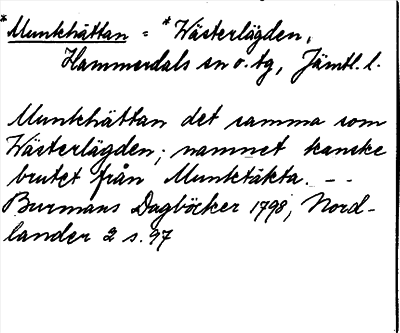 *Munkhättan = *Wästerlägden,
Hammerdals sn o. tg, Jämtl. l.
Munkhättan det samma som
Wästerlägden; namnet kanske
brutet från Munktäkta. – –
Burmans Dagböcker 1798, Nord-
lander 2 s. 97